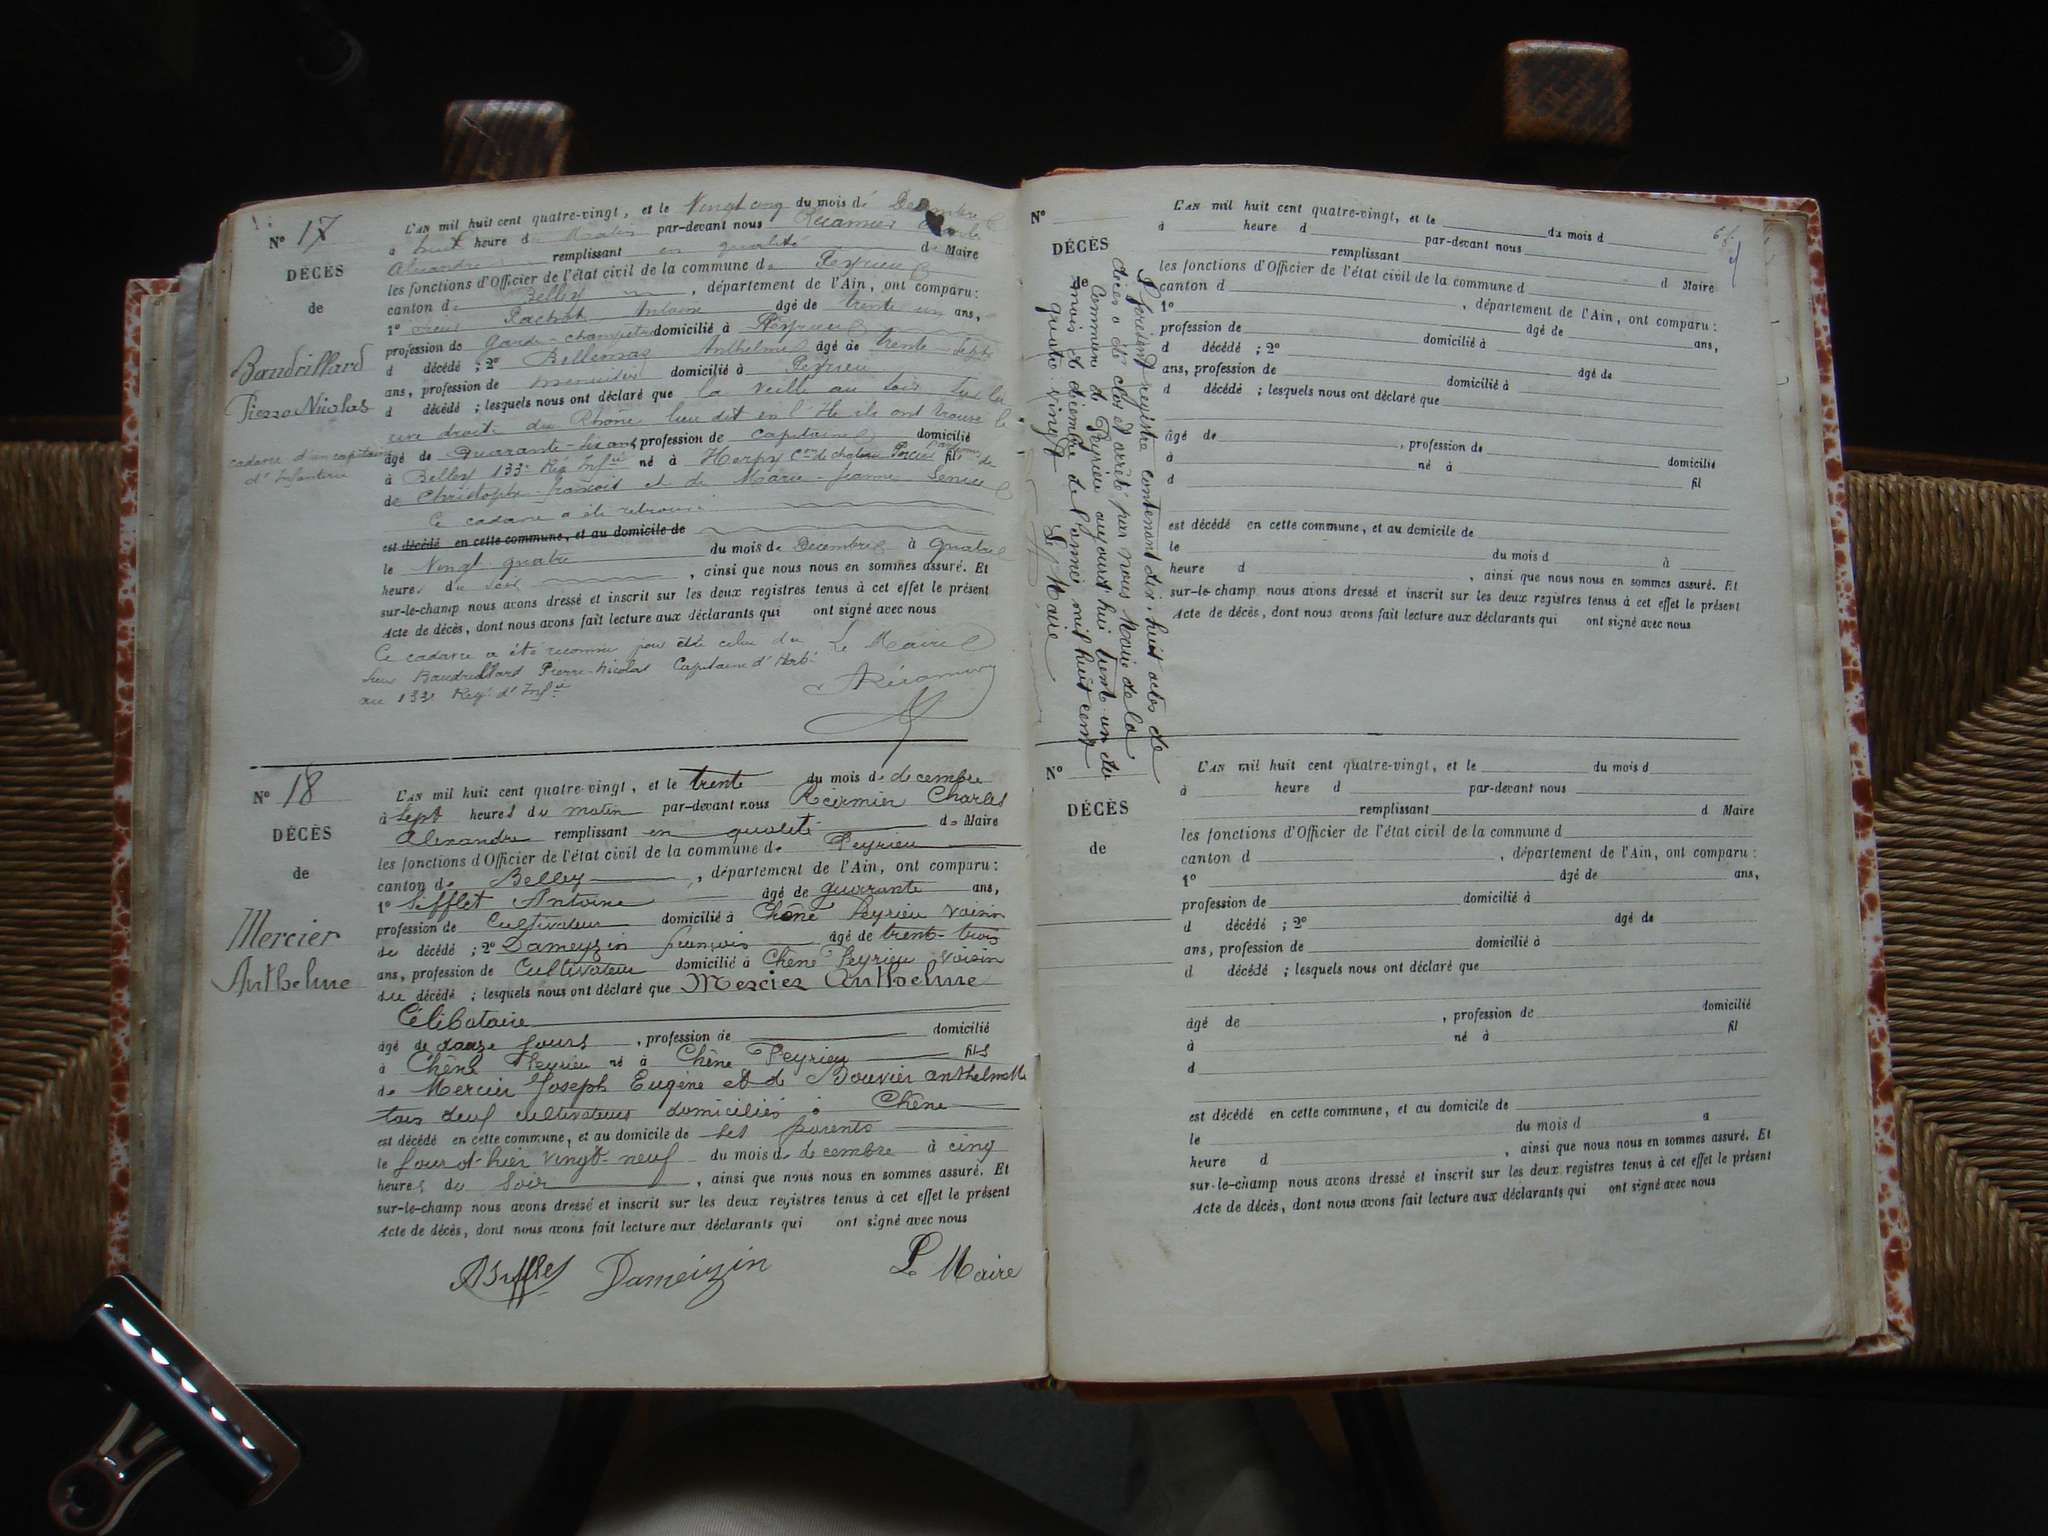 N° 17
DÉCÈS
de
Baudrillard
Pierre-Nicolas
cadavre d'un capitaine
d'Infanterie
L'AN mil huit cent quatre-vingt, et le Vingt cinq du mois de Decembre
à huit heure d Matin par-devant nous Récamier
Alexandre remplissant en qualité de Maire
les fonctions d'Officier de l'état civil de la commune de Peyrieu
canton de Belley, département de l'Ain, ont comparu:
1° Pochet Antoine âgé de trente un ans,
profession de Garde-champêtre domicilié à Peyrieu
d décédé; 2° Bellemaz Anthelme âgé de trente-sept
ans, profession de menuisier domicilié à Peyrieu
d décédé; lesquels nous ont déclaré que la veille au soir sur la
rive droite du Rhône lieu dit en l'Ile ils ont trouvé le
âgé de Quarante-six ans, profession de capitaine domicilié
à Belley 133e Rég Infie né à Herpy Con de chateau Porcien fils de
de Christophe-françois et de Marie-Jeanne
Ce cadavre a été retrouvé
est décédé en cette commune, et au domicile de
le Vingt-quatre du mois de Decembre à quatre
heures du soir, ainsi que nous nous en sommes assuré. Et
sur-le-champ nous avons dressé et inscrit sur les deux registres tenus à cet effet le présent
Acte de décès, dont nous avons fait lecture aux déclarants qui ont signé avec nous
Ce cadavre a été reconnu pour être celui du Le Maire
sieur Baudrillard Pierre-Nicolas Capitaine d'
au 133e Reg d'Infie
ARécamier
N° 18
DÉCÈS
de
Mercier
Anthelme
L'AN mil huit cent quatre-vingt, et le trente du mois de decembre
à sept heures du matin par-devant nous Récamier Charles
Alexandre remplissant en qualité de Maire
les fonctions d'Officier de l'état civil de la commune de Peyrieu
canton de Belley, département de l'Ain, ont comparu:
1° Sifflet Antoine âgé de quarante ans,
profession de Cultivateur domicilié à Chêne Peyrieu voisin
du décédé; 2° Dameyzin françois âgé de trent-trois
ans, profession de Cultivateur domicilié à Chêne Peyrieu voisin
du décédé; lesquels nous ont déclaré que Mercier Anthelme
Célibataire
âgé de douze jours, profession de domicilié
à Chêne Peyrieu né à Chêne Peyrieu fils
de Mercier Joseph Eugène et de Bouvier anthelmette
tous deux cultivateurs domiciliés à Chêne
est décédé en cette commune, et au domicile de ses parents
le jour d'hier vingt-neuf du mois de decembre à cinq
heures du soir, ainsi que nous nous en sommes assuré. Et
sur-le-champ nous avons dressé et inscrit sur les deux registres tenus à cet effet le présent
Acte de décès, dont nous avons fait lecture aux déclarants qui ont signé avec nous
ASifflet Dameizin Le Maire
N°
DÉCÈS
de
Le présent registre contenant dix-huit actes de
décès a été clos et arrêté par nous Maire de la
Commune de Peyrieu aujourd'hui trent un du
mois de décembre de l'année mil huit cent
quatre vingt
Le Maire
L'AN mil huit cent quatre-vingt, et le du mois d
à heure d par-devant nous
remplissant d Maire
les fonctions d'Officier de l'état civil de la commune d
canton d , département de l'Ain, ont comparu:
1° âgé de ans,
profession de domicilié à
d décédé; 2° âgé de
ans, profession de domicilié à
d décédé; lesquels nous ont déclaré que
âgé de , profession de domicilié
à né à fil
d
est décédé en cette commune, et au domicile de
le du mois d à
heure d , ainsi que nous nous en sommes assuré. Et
sur-le-champ nous avons dressé et inscrit sur les deux registres tenus à cet effet le présent
Acte de décès, dont nous avons fait lecture aux déclarants qui ont signé avec nous
N°
DÉCÈS
de
L'AN mil huit cent quatre-vingt, et le du mois d
à heure d par-devant nous
remplissant d Maire
les fonctions d'Officier de l'état civil de la commune d
canton d , département de l'Ain, ont comparu:
1° âgé de ans,
profession de domicilié à
d décédé; 2° âgé de
ans, profession de domicilié à
d décédé; lesquels nous ont déclaré que
âgé de , profession de domicilié
à né à fil
d
est décédé en cette commune, et au domicile de
le du mois d à
heure d , ainsi que nous nous en sommes assuré. Et
sur-le-champ nous avons dressé et inscrit sur les deux registres tenus à cet effet le présent
Acte de décès, dont nous avons fait lecture aux déclarants qui ont signé avec nous